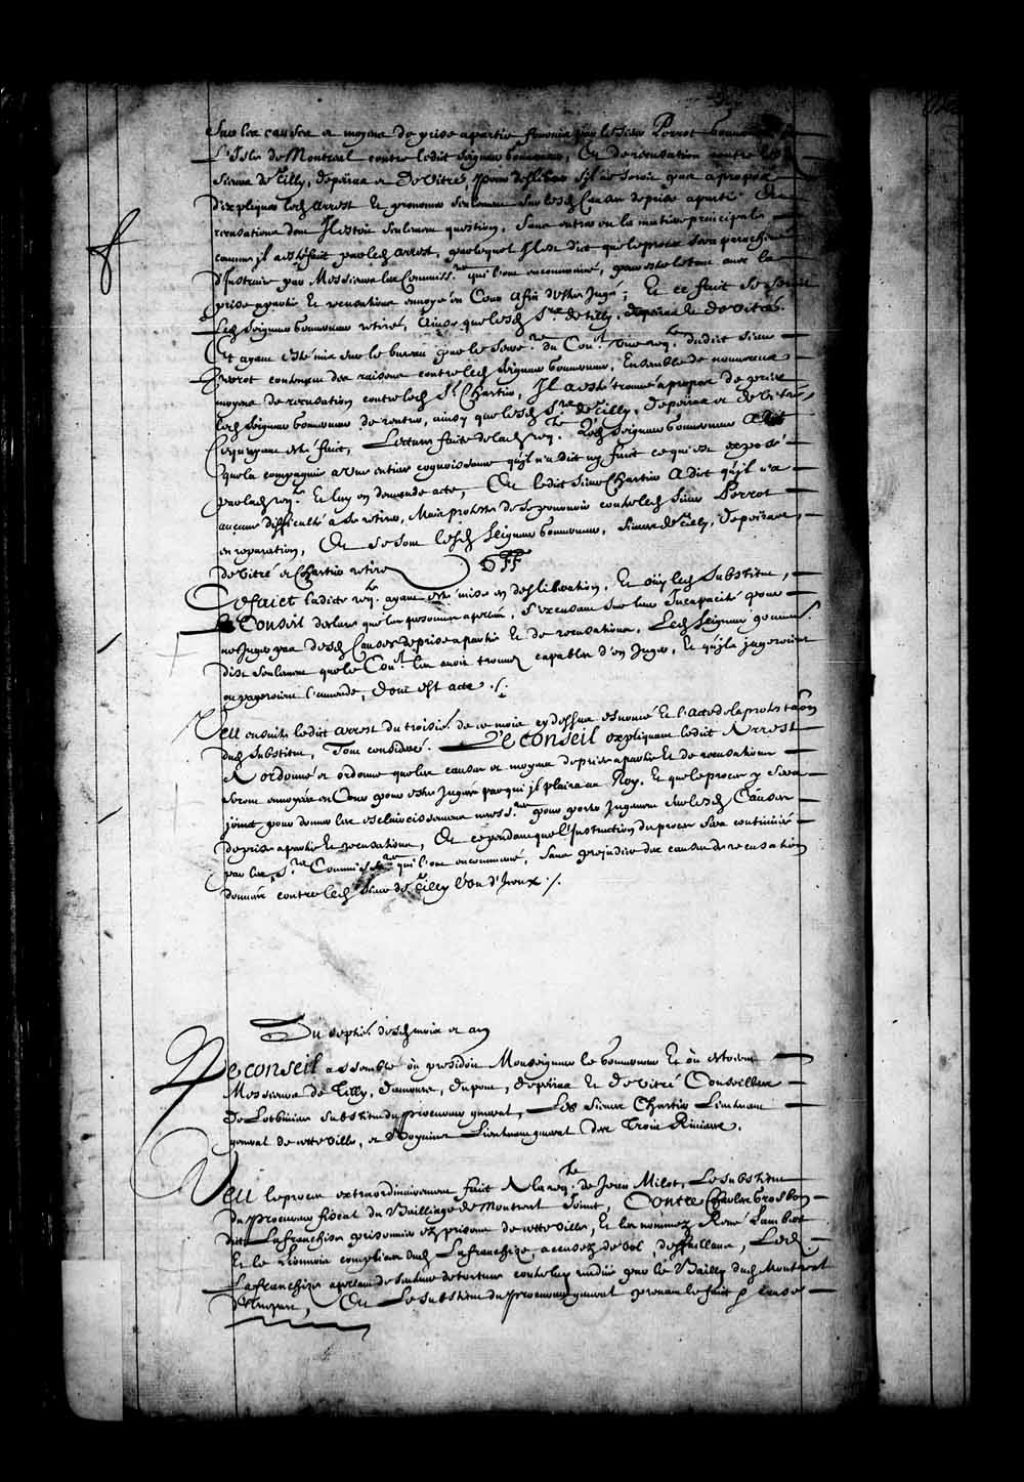 Sur les causes et moyens de prise a partie fournis par le sieur Perrot gouverneur de
L'Isle de Montreal contre ledit seigneur gouverneur, Et de recusation contre les
sieurs de Tilly, depeiras et de Vitré, pour deliberer s'il ne seroit pas a propos
d'expliquer led. arrest et prononcer seulement sur lesd. causes de prise a partie Et
recusations dont Il estoit seulement question, sans entrer en la matiere principale
comme il a esté fait par led. arrest, par lequel Il est dit que le procez sera parachevé
d'Instruire par Messieurs les Commiss.res qui l'ont encommencé, pour estre le tout avec la
prise a partie et recusations envoyé en Cour afin d'estre Jugé; Et ce fait se sont
led. seigneur gouverneur retirés, ainsy que lesd. Srs. de Tilly, depeiras et de Vitré.
Et ayant esté mis sur le bureau par le secre.re du Con.l une req.te dudit sieur
Perrot contenant des raisons contre led. seigneur gouverneur, Ensemble de nouveaux
moyens de recusation contre led. Sr. Chartier, Il a esté trouvé a propos de prier
led. seigneur gouverneur de rentrer, ainsy que lesd. Srs. de Tilly, depeiras et de Vitré,
Ce qu'ayant esté fait, Lecture faite de lad. req.te Led. seigneur gouverneur a dit
que la compagnie a une entiere cognoissance qu'il n'a dit ny fait ce qui est exposé
par lad. req.te Et luy en demande acte, Et ledit sieur Chartier a dit qu'il n'a
aucune difficulté a se retirer, Mais proteste de se pourvoir contre led. sieur Perrot
en reparation, Et se sont lesd. seigneur gouverneur, sieurs de Tilly, depeiras,
de Vitré et Chartier retirez
Ce faict ladicte req.te ayant esté mise en desliberation, Et oüy led. substitut,
Le Conseil declare que les personnes apellées, s'excusant sur leur Incapacité pour
ne Juger pas desd. causes de prise a partie et de recusations, Led. seigneur gouverneur
dist seulement que le Con.l les avoit trouvez capables d'en Juger, Et qu'ils jugeroient
ou payeroient l'amende, dont est acte ./.
Veu ensuite ledit arrest du troisié. de ce mois cy dessus enoncé Et l'acte de la protestaon
dud. substitut, Tout consideré. Le Conseil expliquant ledit Arrest
A ordonné et ordonne que les causes et moyens de prise a partie Et de recusations
seront envoyées en Cour pour estre Jugées par qui il plaira au Roy, Et que le procez y sera
joint pour donner les esclaircissemens necess.res pour porter Jugement sur lesd. Causes
de prise a partie Et recusations, Et cependant que l'Instruction du procez sera continuée
par les Srs. Commissaires qui l'ont encommencé, sans prejudice des causes de recusation
données contre led. sieur de Tilly l'un d'Iceux ./.
Du septié. desd. mois et an
Le Conseil assemblé où presidoit Monseigneur le gouverneur Et où estoient
Messieurs de Tilly, damours, dupont, depeiras Et de Vitré Conseillers
De Lotbiniere substitut du procureur general, Les sieurs Chartier Lieutenant
general de cette ville, et Boyvinet Lieutenant general des Trois Rivieres.
Veu le procez extraordinairement fait A la req.te de Jean Milot, Le substitut
du procureur fiscal du Bailliage de Montreal Joint, Contre Charles Brosbon
dit Lafranchise prisonnier ez prisons de cette ville, Et les nommez René Lambert
Et le Lionnois complices dud. Lafranchise, accusez de vol, deffaillans, Led.
Lafranchise apellant de sentence de torture contre luy rendüe par le Bailly dud. Montreal
d'Une part, Et Le substitut du procureur general prenant le fait et cause